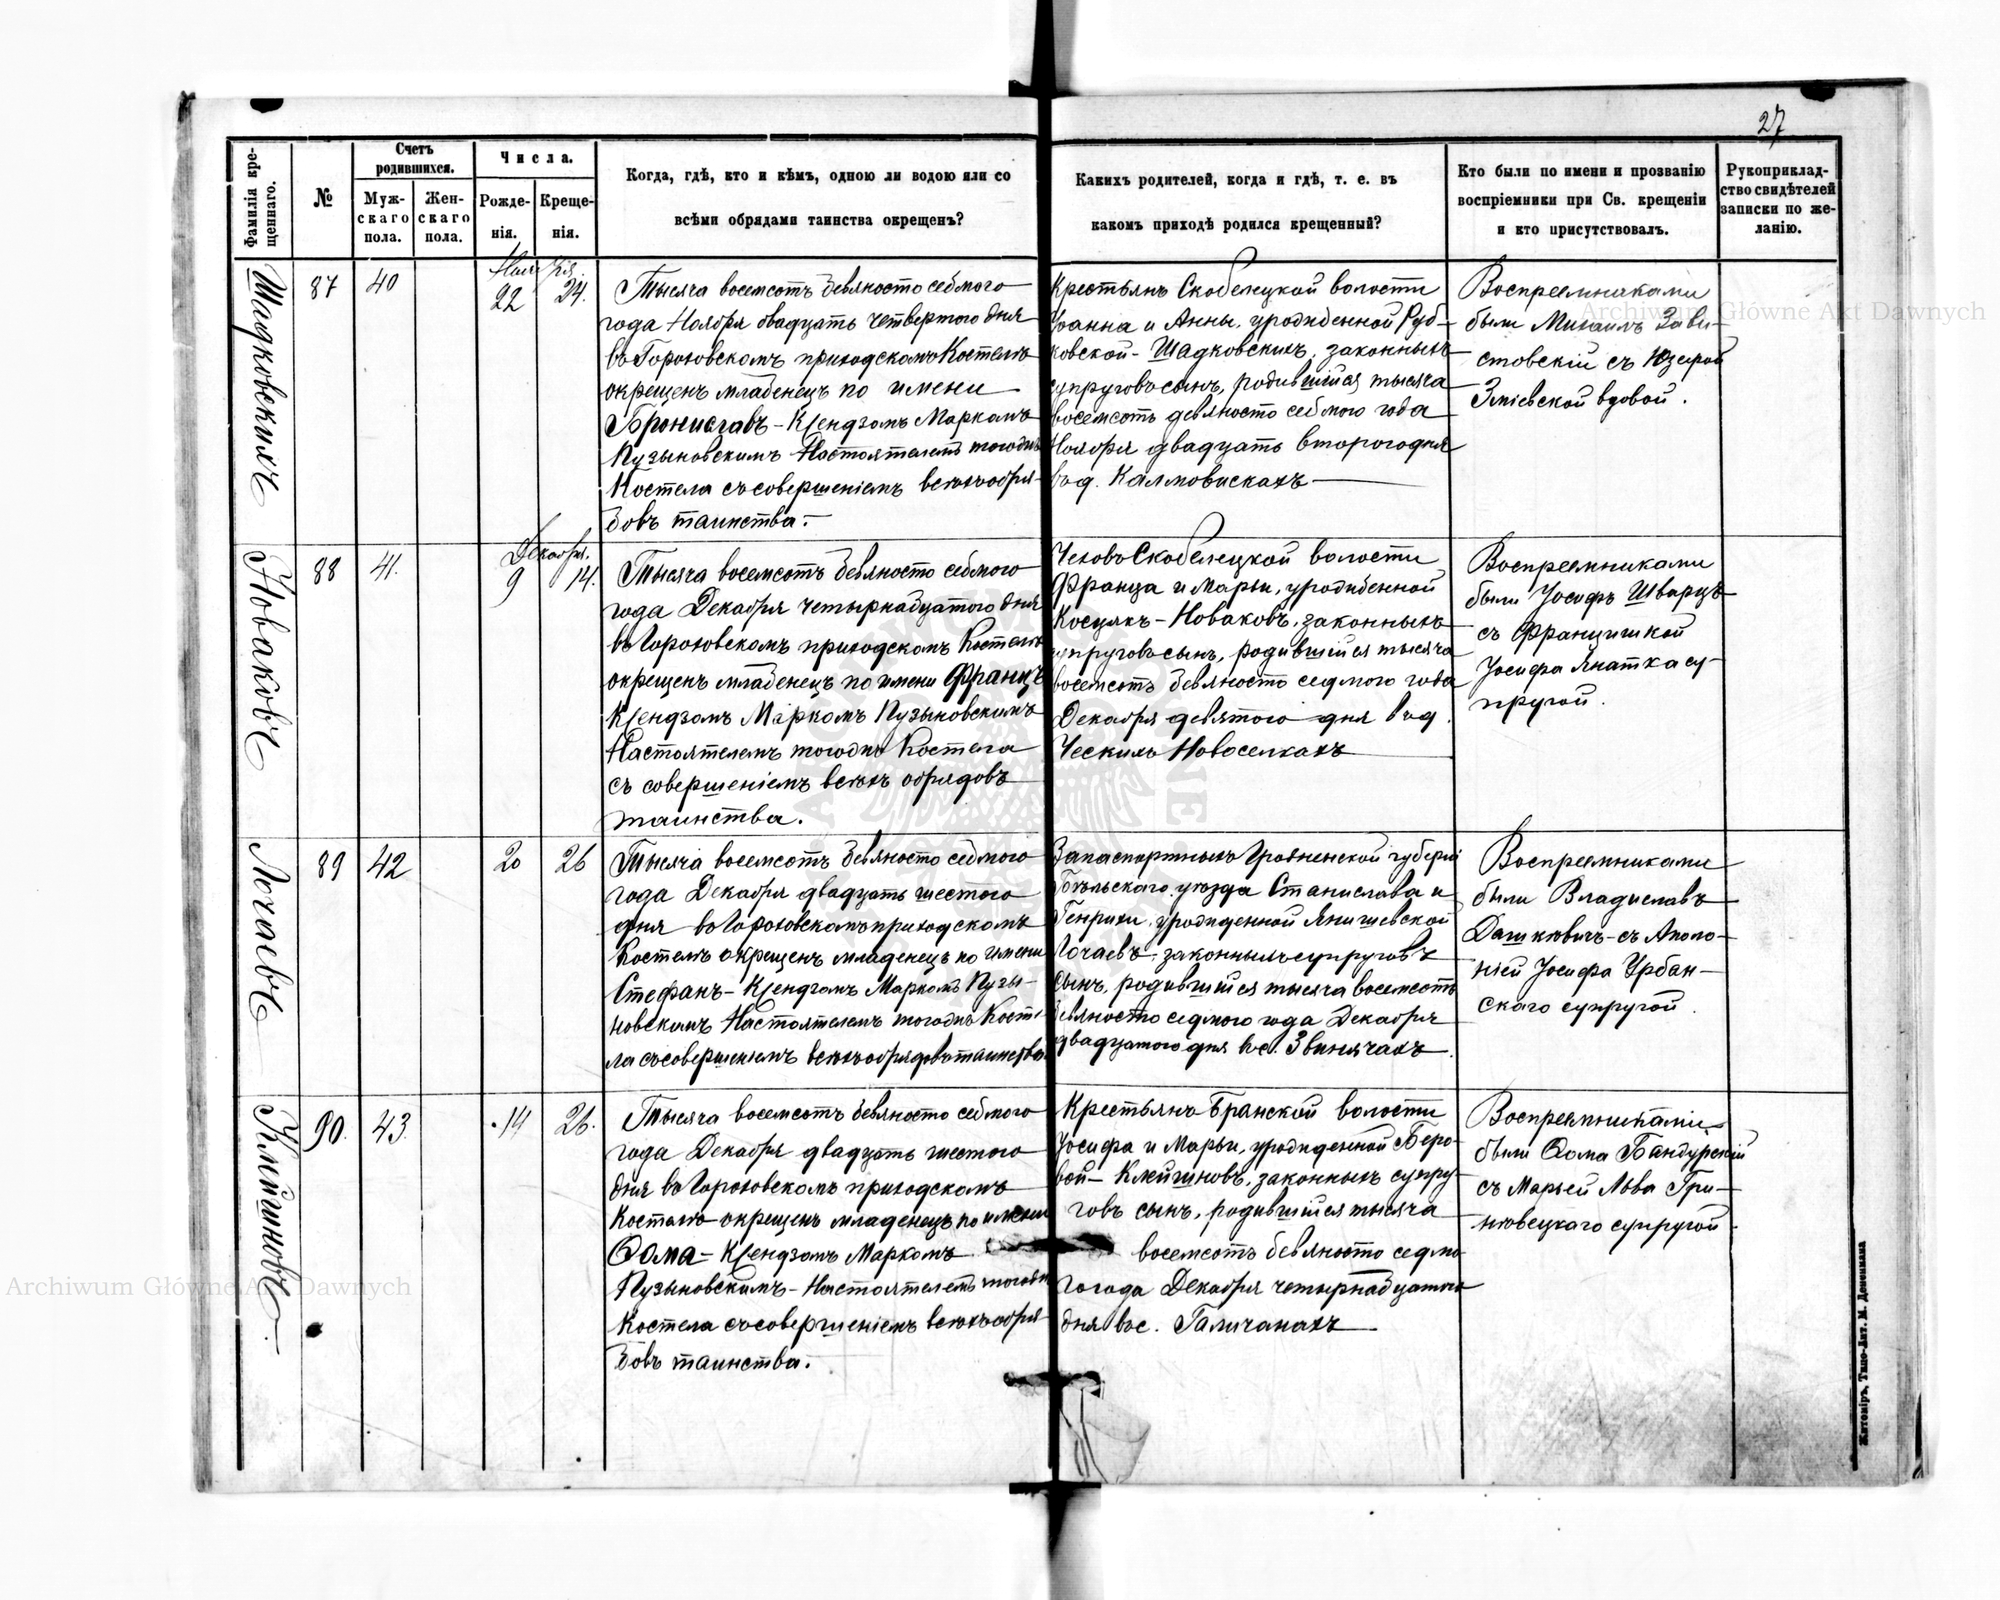 27
Фамилія кре-
щеннаго.
№
Счетъ
родившихся.
Муж-
скаго
пола.
Жен-
скаго
пола.
Числа.
Рожде-
нія.
Креще-
нія.
Когда, гдѣ, кто и кѣмъ, одною ли водою или со
всѣми обрядами таинства окрещенъ?
Какихъ родителей, когда и гдѣ, т. е. въ
какомъ приходѣ родился крещенный?
Кто были по имени и прозванію
воспріемники при Св. крещеніи
и кто присутствовалъ.
Рукоприклад-
ство свидѣтелей
записки по же-
ланію.
Шадковскихъ
87
40
Ноября
22
24.
Тысяча восемсотъ девяносто седмого
года Ноября двадцать четвертого дня
въ Гороховскомъ приходскомъ Костелѣ
окрещенъ младенецъ по имени
Брониславъ - Ксендзомъ Маркомъ
Пузыновскимъ Настоятелемъ тогоднь
Костела съ совершеніемъ всѣхъ обря-
довъ таинства. -
Крестьянъ Скобелецкой волости
Іоанна и Анны, урожденной Руд-
ковской - Шадковскихъ, законныхъ
супруговъ сынъ, родившійся тысяча
восемсотъ девяносто седмого года
Ноября двадцать второго дня
въ д. Калмовискахъ
Воспреемниками
были Михаилъ Зави-
стовскій съ Юзефой
Зміевской вдовой.
Новаковъ
88
41.
Декабря.
9
14.
Тысяча восемсотъ девяносто седмого
года Декабря четырнадцатого дня
въ Гороховскомъ приходскомъ Костелѣ
окрещенъ младенецъ по имени Францъ
Ксендзомъ Маркомъ Пузыновскимъ
Настоятелемъ тогоднь Костела
съ совершеніемъ всѣхъ обрядовъ
таинства.
Чеховъ Скобелецкой волости
Франца и Марьи, урожденной
Косулкъ - Новаковъ, законныхъ
супруговъ сынъ, родившійся тысяча
восемсотъ девяносто седмого года
Декабря девятого дня въ д.
Ческихъ Новоселкахъ
Воспреемниками
были Іосифъ Шварцъ
съ Францишкой
Іосифа Янатка су-
пругой.
Лочаевъ
89
42
20
26
Тысяча восемсотъ девяносто седмого
года Декабря двадцать шестого
дня въ Гороховскомъ приходскомъ
Костелѣ окрещенъ младенецъ по имени
Стефанъ - Ксендзомъ Маркомъ Пузы-
новскимъ Настоятелемъ тогоднь Косте-
ла съ совершеніемъ всѣхъ обрядовъ таинства
Запаспортныхъ Гродненской губерніи
Бѣльскаго уѣзда Станислава и
Генрики, урожденной Янишевской
Лочаевъ законныхъ супруговъ
сынъ, родившійся тысяча восемсотъ
девяносто седмого года Декабря
двадцатого дня въ с. Звинячахъ.
Воспреемниками
были Владиславъ
Дашкевичъ съ Аполо-
ніей Іосифа Урбан-
скаго супругой.
Клейшновъ.
90.
43.
14
26.
Тысяча восемсотъ девяносто седмого
года Декабря двадцать шестого
дня въ Гороховскомъ приходскомъ
Костелѣ окрещенъ младенецъ по имени
Ѳома - Ксендзомъ Маркомъ
Пузыновскимъ - Настоятелемъ тогоднь
Костела съ совершеніемъ всѣхъ обря-
довъ таинства.
Крестьянъ Бранской волости
Іосифа и Марьи, урожденной Беро-
вой - Клейшновъ, законныхъ супру-
говъ сынъ, родившійся тысяча
восемсотъ девяносто седмо-
го года Декабря четырнадцатого
дня въ с. Галичанахъ
Воспреемниками
были Ѳома Бандурскій
съ Марьей Льва Гри-
невецкаго супругой.
Житоміръ, Типо-Лит. М. Дененмана
Archiwum Główne Akt Dawnych
Archiwum Główne Akt Dawnych